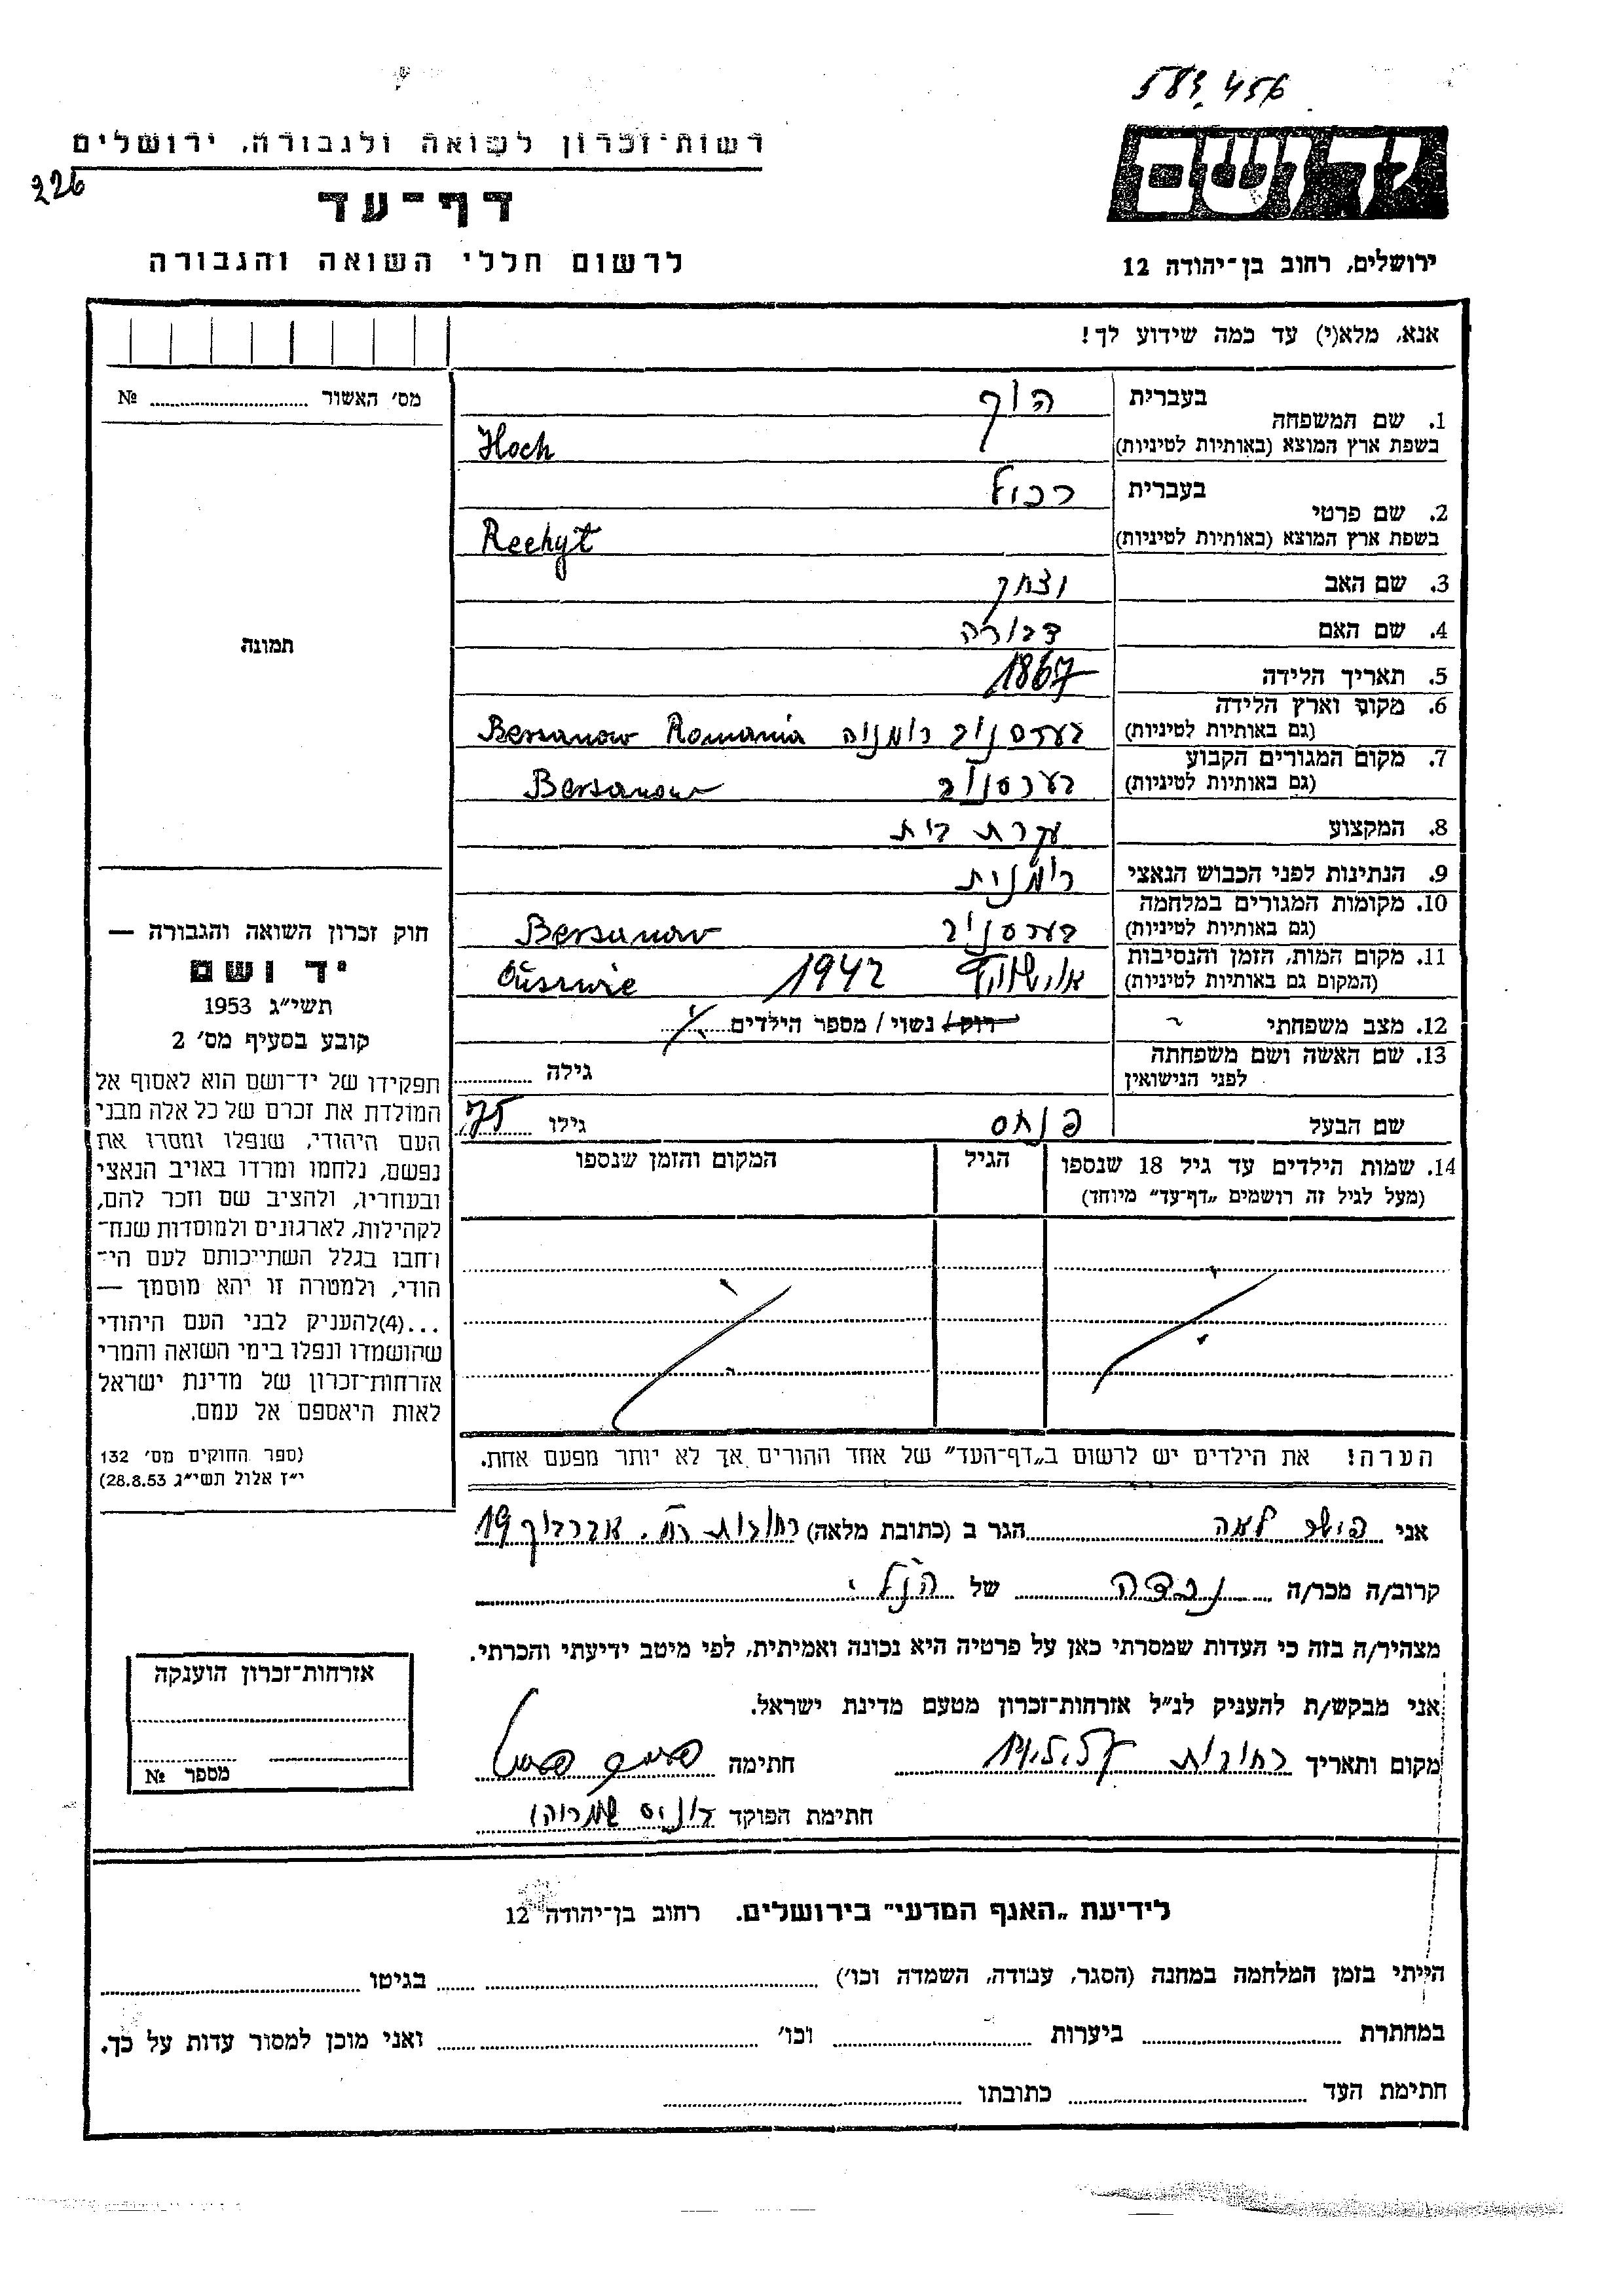 583.456
רשות־זכרון לשואה ולגבורה, ירושלים
226
דף־עד
ידושם
לרשום חללי השואה והגבורה
ירושלים, רחוב בן־יהודה 12
אנא, מלא(י) עד כמה שידוע לך!
מס׳ האשור № 
1. שם המשפחה
בעברית הוך
בשפת ארץ המוצא (באותיות לטיניות) Hoch
2. שם פרטי
בעברית
בשפת ארץ המוצא (באותיות לטיניות)
3. שם האב יצחק
4. שם האם דבורה
5. תאריך הלידה 1867
6. מקום וארץ הלידה
(גם באותיות לטיניות) בערסנוב רומניה Bersanow Romania
7. מקום המגורים הקבוע
(גם באותיות לטיניות) בערסנוב Bersanow
8. המקצוע עקרת בית
9. הנתינות לפני הכבוש הנאצי רומנית
10. מקומות המגורים במלחמה
(גם באותיות לטיניות) בערסנוב Bersanow
11. מקום המות, הזמן והנסיבות
(המקום גם באותיות לטיניות) 1942
12. מצב משפחתי רוק / נשוי / מספר הילדים
13. שם האשה ושם משפחתה
לפני הנישואין גילה
שם הבעל פנחס גילו 75
14. שמות הילדים עד גיל 18 שנספו הגיל המקום והזמן שנספו
(מעל לגיל זה רושמים „דף־עד״ מיוחד)
הערה! את הילדים יש לרשום ב„דף־העד״ של אחד ההורים אך לא יותר מפעם אחת.
תמונה
חוק זכרון השואה והגבורה —
יד ושם
תשי״ג 1953
קובע בסעיף מס׳ 2
תפקידו של יד־ושם הוא לאסוף אל
המולדת את זכרם של כל אלה מבני
העם היהודי, שנפלו ומסרו את
נפשם, נלחמו ומרדו באויב הנאצי
ובעוזריו, ולהציב שם וזכר להם,
לקהילות, לארגונים ולמוסדות שנח־
רבו בגלל השתייכותם לעם הי־
הודי, ולמטרה זו יהא מוסמך —
...(4) להעניק לבני העם היהודי
שהושמדו ונפלו בימי השואה והמרי
אזרחות־זכרון של מדינת ישראל
לאות היאספם אל עמם.
(ספר החוקים מס׳ 132
י״ז אלול תשי״ג 28.8.53)
אני פישר לאה הגר ב (כתובת מלאה) רחובות 19
קרוב/ה מכר/ה נכדה של הנ״ל
מצהיר/ה בזה כי העדות שמסרתי כאן על פרטיה היא נכונה ואמיתית, לפי מיטב ידיעתי והכרתי.
אני מבקש/ת להעניק לנ״ל אזרחות־זכרון מטעם מדינת ישראל.
מקום ותאריך רחובות חתימה
חתימת הפוקד
אזרחות־זכרון הוענקה
מספר №
לידיעת „האגף המדעי״ בירושלים. רחוב בן־יהודה 12
הייתי בזמן המלחמה במחנה (הסגר, עבודה, השמדה וכו׳) בגיטו
במחתרת ביערות וכו׳ ואני מוכן למסור עדות על כך.
חתימת העד כתובתו